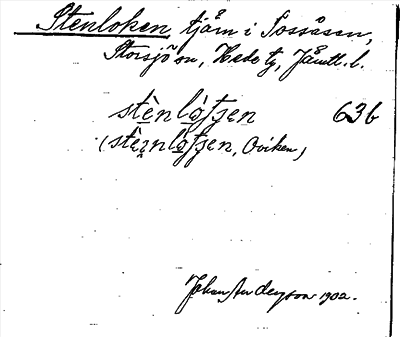 Stenloken tjärn i Sossåsen,
Storsjö sn, Hede tg, Jämtl. l.
stènlò̱tʃen 636
(stènlò̱tʃen, Oviken)
Johan Anderzson 1902.